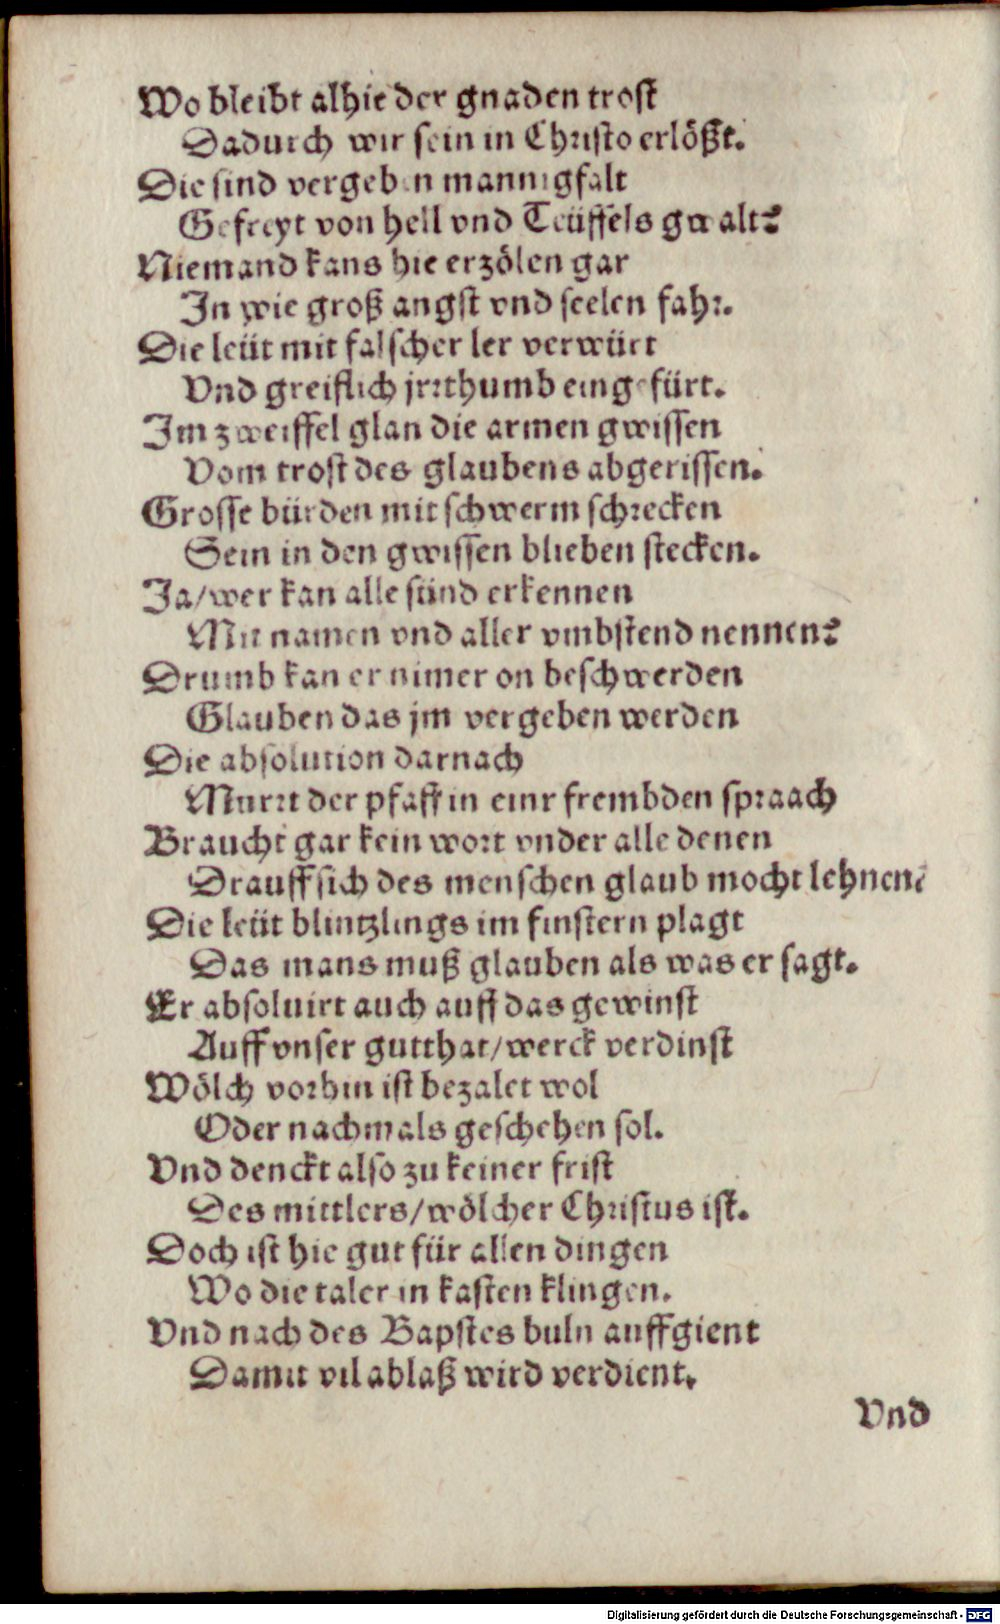 Wo bleibt alhie der gnaden trost
Dadurch wir sein in Christo erlößt.
Die sind vergeben mannigfalt
Gefreyt von hell vnd Teüffels gwalt?
Niemand kans hie erzölen gar
In wie groß angst vnd seelen fahr.
Die leüt mit falscher ler verwürt
Vnd greiflich jrrthumb eingefürt.
Im zweiffel glan die armen gwissen
Vom trost des glaubens abgerissen.
Grosse bürden mit schwerm schrecken
Sein in den gwissen blieben stecken.
Ja/wer kan alle sünd erkennen
Mit namen vnd aller vmbstend nennen?
Drumb kan er nimer on beschwerden
Glauben das jm vergeben werden
Die absolution darnach
Murrt der pfaff in einr frembden spraach
Braucht gar kein wort vnder alle denen
Drauff sich des menschen glaub mocht lehnen?
Die leüt blintzlings im finstern plagt
Das mans muß glauben als was er sagt.
Er absoluirt auch auff das gewinst
Auff vnser gutthat/werck verdinst
Wölch vorhin ist bezalet wol
Oder nachmals geschehen sol.
Vnd denckt also zu keiner frist
Des mittlers/wölcher Christus ist.
Doch ist hie gut für allen dingen
Wo die taler in kasten klingen.
Vnd nach des Bapstes buln auffgient
Damit vil ablaß wird verdient.
Vnd
Digitalisierung gefördert durch die Deutsche Forschungsgemeinschaft - DFG